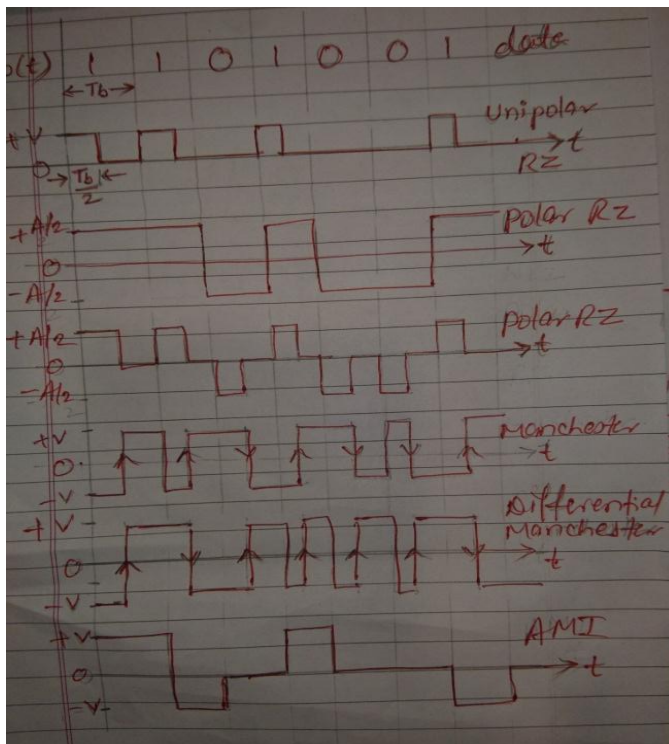 b(t) 1 1 0 1 0 0 1 data
← Tb →
+V Unipolar
0 → t
→ Tb/2 ← RZ
+A/2 Polar RZ
0 → t
-A/2
+A/2 Polar RZ
0 → t
-A/2
+V Manchester
0 → t
-V
+V Differential
Manchester
0 → t
-V
+V AMI
0 → t
-V